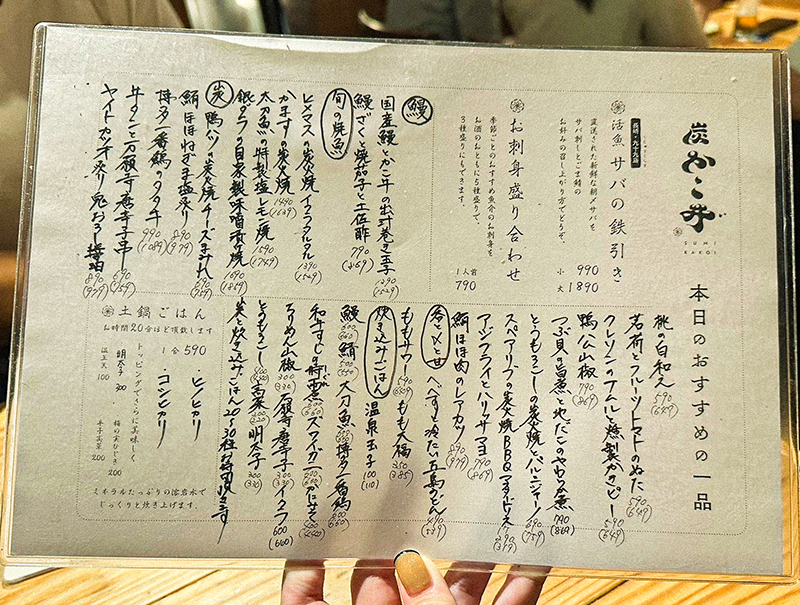 炭かこ井
SUMI
KAKOI
本日のおすすめの一品
長崎・九十九島
活魚 サバの鉄引き
直送された新鮮な朝〆サバを
サバ刺しとごま鯖の
お好みの召し上がり方でどうぞ。
小 990
大 1890
お刺身盛り合わせ
季節ごとのおすすめ魚介のお刺身を
お酒のおともに5種盛りで。
3種盛りにもできます。
1人前
790
鰻
国産鰻とかこ井の出汁巻き玉子 1390 (1529)
鰻ざくと焼茄子と土佐酢 790 (869)
旬の焼魚
ヒメマスの炭火焼 イクラタルタル 1390 (1529)
かますの炭火焼 1490 (1639)
太刀魚の特製塩レモン焼 1590 (1749)
銀ダラの自家製味噌漬け焼 1690 (1859)
炭
鴨ハツの炭火焼 チーズまみれ 690 (759)
鯖ほほねぎま塩炙り 890 (979)
博多一番鶏のタタキ 990 (1089)
牛タンと万願寺唐辛子串 690 (759)
ヤイトカツオ炙り 鬼おろし醤油 890 (979)
桃の白和え 590 (649)
茗荷とフルーツトマトのぬた 590 (649)
クレソンのナムルと燻製カラスピー 590 (649)
鴨ハム山椒 790 (869)
つぶ貝の旨煮と地だこのやわらか煮 790 (869)
とうもろこしの炭火焼とパルミジャーノ 690 (759)
スペアリブの炭火焼BBQ
アジフライとハリサマヨ 790 (869)
鯖ほほ肉のレアカツ 890 (979)
呑と〆と甘
へべすと冷たい五島うどん 490 (539)
ももサワー 590 (649)
もも大福 350 (385)
炊き込みごはん
温泉玉子 100 (110)
鰻 600 (660)
鯖 500 (550)
太刀魚
博多一番鶏 600 (660)
和牛すじの時雨煮 600 (660)
ズワイガニかにみそ
ちりめん山椒 300 (330)
万願寺唐辛子 300 (330)
イクラ 600 (660)
とうもろこし 400 (440)
高菜
明太子 300 (330)
炭と炊き込みごはん20~30程お時間頂きます
土鍋ごはん
お時間20分ほど頂戴します
1合 590
・ヒノヒカリ
・コシヒカリ
トッピングでさらに美味しく
明太子 300
梅の実ひじき 200
温玉天 100
辛子高菜 200
ミネラルたっぷりの溶岩水で
じっくりと炊き上げます。